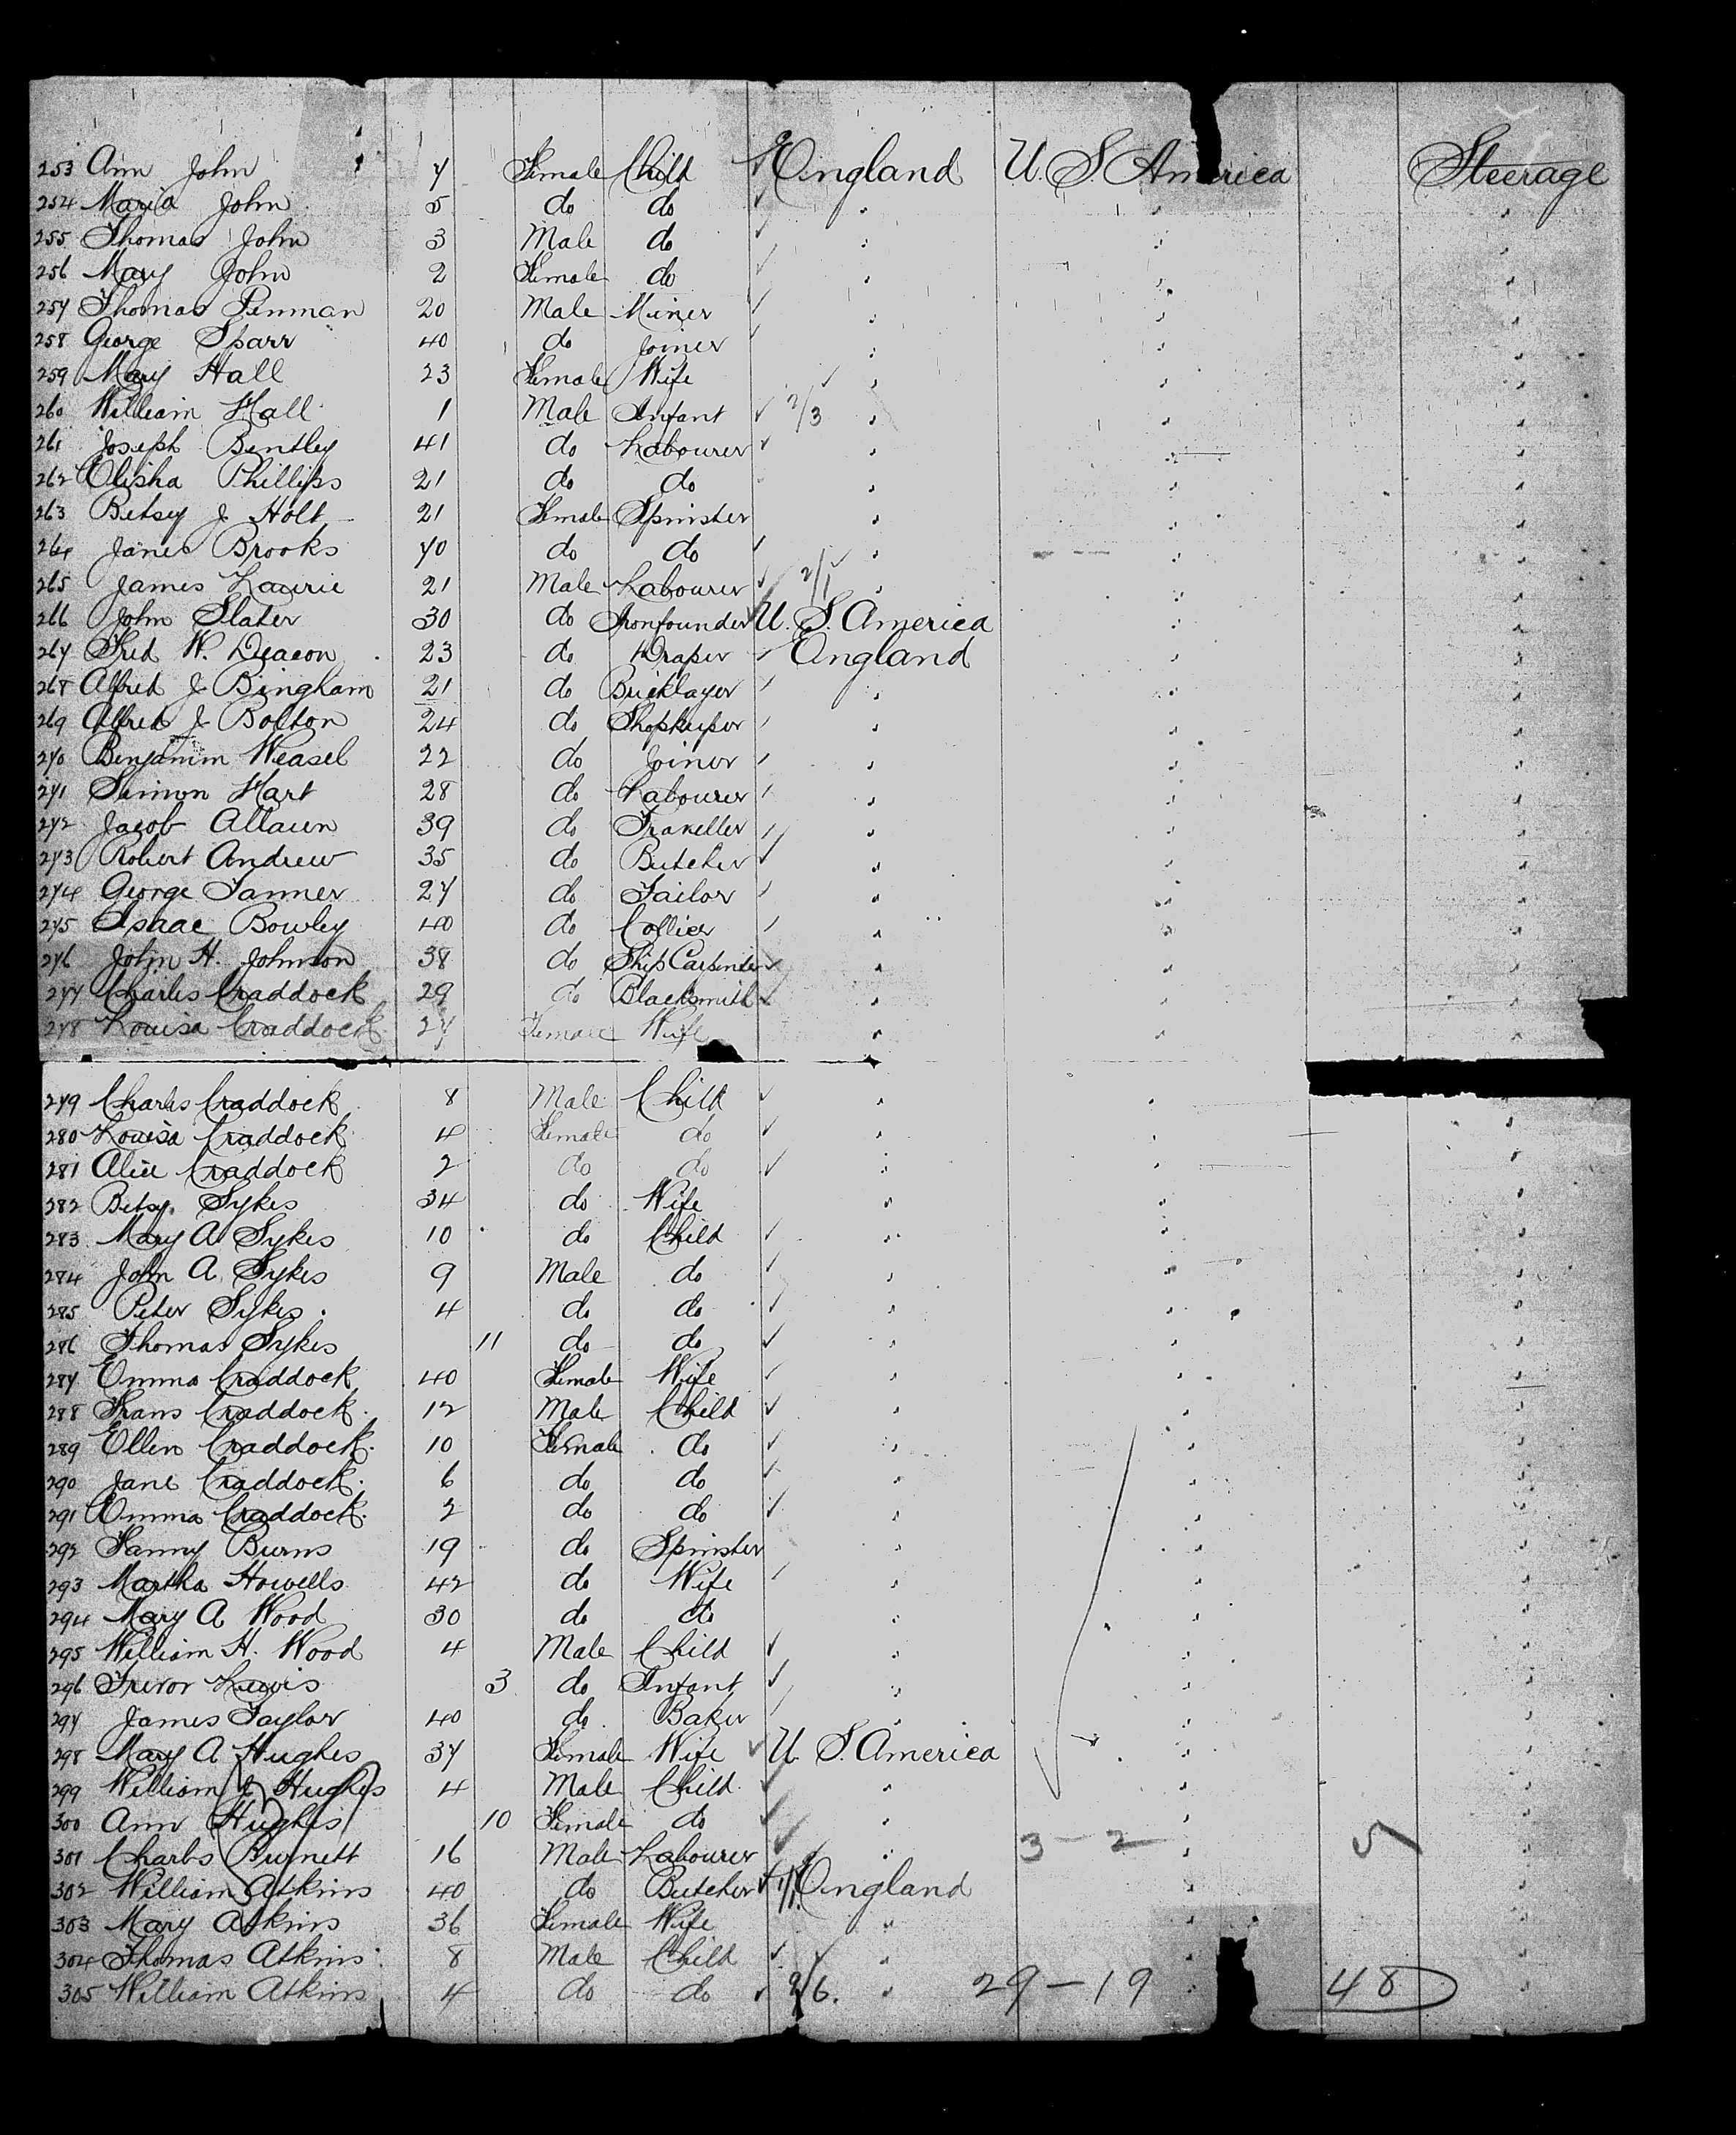 253 Ann John 7 Female Child England U. S. America Steerage
254 Maria John 5 do do " " "
255 Thomas John 3 Male do " " "
256 Mary John 2 Female do " " "
257 Thomas Penman 20 Male Miner " " "
258 George Sparr 40 do Joiner " " "
259 Mary Hall 23 Female Wife " " "
260 William Hall 1 Male Infant 2/3 " " "
261 Joseph Bentley 41 do Labourer " " "
262 Elisha Phillips 21 do do " " "
263 Betsey J Holt 21 Female Spinster " " "
264 Jane Brooks 70 do do " " "
265 James Laurie 21 Male Labourer 2/1 " " "
266 John Slater 30 do Ironfounder U. S. America " "
267 Fred W. Deacon 23 do Draper England " "
268 Alfred J Bingham 21 do Bricklayer " " "
269 Alfred J Bolton 24 do Shopkeeper " " "
270 Benjamin Weasel 22 do Joiner " " "
271 Simon Hart 28 do Labourer " " "
272 Jacob 39 do Traveller " " "
273 Robert Andrew 35 do Butcher " " "
274 George Tanner 27 do Tailor " " "
275 Isaac Bowley 40 do Collier " " "
276 John H. Johnson 38 do Ship Carpenter " " "
277 Charles Craddock 29 do Blacksmith " " "
278 Louisa Craddock 27 Female Wife " "
279 Charles Craddock 8 Male Child " "
280 Louisa Craddock 4 Female do " " "
281 Alice Craddock 2 do do " " "
282 Betsy Sykes 34 do Wife " " "
283 Mary A Sykes 10 do Child " " "
284 John A Sykes 9 Male do " " "
285 Peter Sykes 4 do do " " "
286 Thomas Sykes 11 do do " " "
287 Emma Craddock 40 Female Wife " " "
288 Frans Craddock 12 Male Child " " "
289 Ellen Craddock 10 Female do " " "
290 Jane Craddock 6 do do " " "
291 Emma Craddock 2 do do " " "
292 Fanny Burns 19 do Spinster " " "
293 Martha Howells 42 do Wife " " "
294 Mary A Wood 30 do do " " "
295 William H. Wood 4 Male Child " " "
296 Trevor Lewis 3 do Infant " " "
297 James Taylor 40 do Baker " " "
298 Mary A Hughes 37 Female Wife U. S. America " "
299 William J Hughes 4 Male Child " " "
300 Ann Hughes 10 Female do " " "
301 Charles Burnett 16 Male Labourer " 3-2 " 5
302 William Atkins 40 do Butcher 1/1 England " "
303 Mary Atkins 36 Female Wife " " "
304 Thomas Atkins 8 Male Child " " "
305 William Atkins 4 do do 9/6. " 29-19 " 48